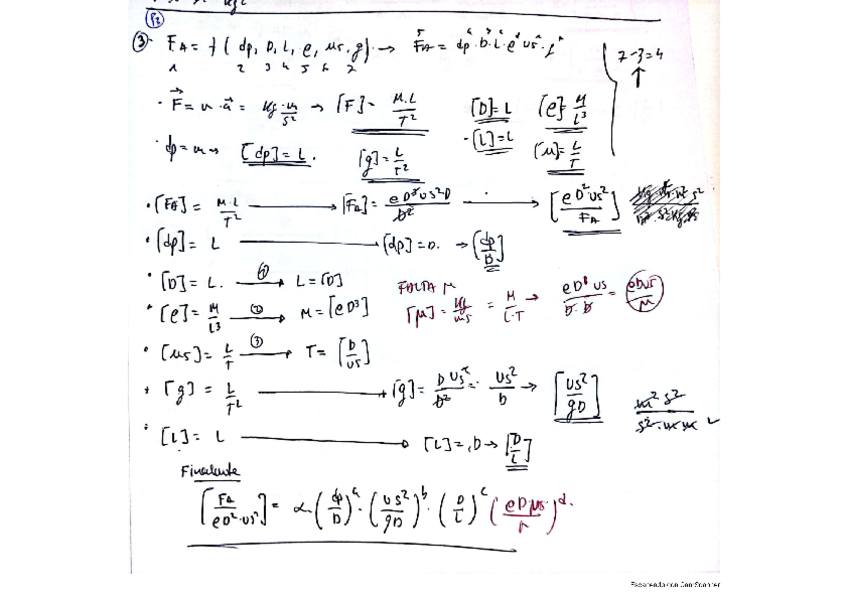 P2
③ F_A = f( dp, D, L, e, us, g ) → F_A = dp^a · D^b · L^c · e^d · us · g
1 2 3 4 5 6 7
7-3=4
· F = m · a = kg · m/s² → [F] = M·L/T² [D]=L [e]= M/L³
· dp = m → [dp]=L. [g]= L/T² · [L]=L [us]= L/T
· [FA] = M·L/T² → [FA] = e D³ us² D / D² → [e D² us² / FA]
· [dp] = L → [dp] = D. → [dp/D]
· [D] = L. ① → L = [D] FALTA μ
· [e] = M/L³ ② → M = [e D³] [μ] = kg/ms = M/L·T → e D³ us / D·D = eDus/μ
· [us] = L/T ③ → T = [D/us]
· [g] = L/T² → [g] = D us²/D² = us²/D → [us²/gD] m² s² / s² · m m
· [L] = L → [L] = D → [D/L]
Finalmente
[FA / eD²·us²] = α (dp/D)^a · (us²/gD)^b · (D/L)^c (eD·us/μ)^d.
Escaneado con CamScanner